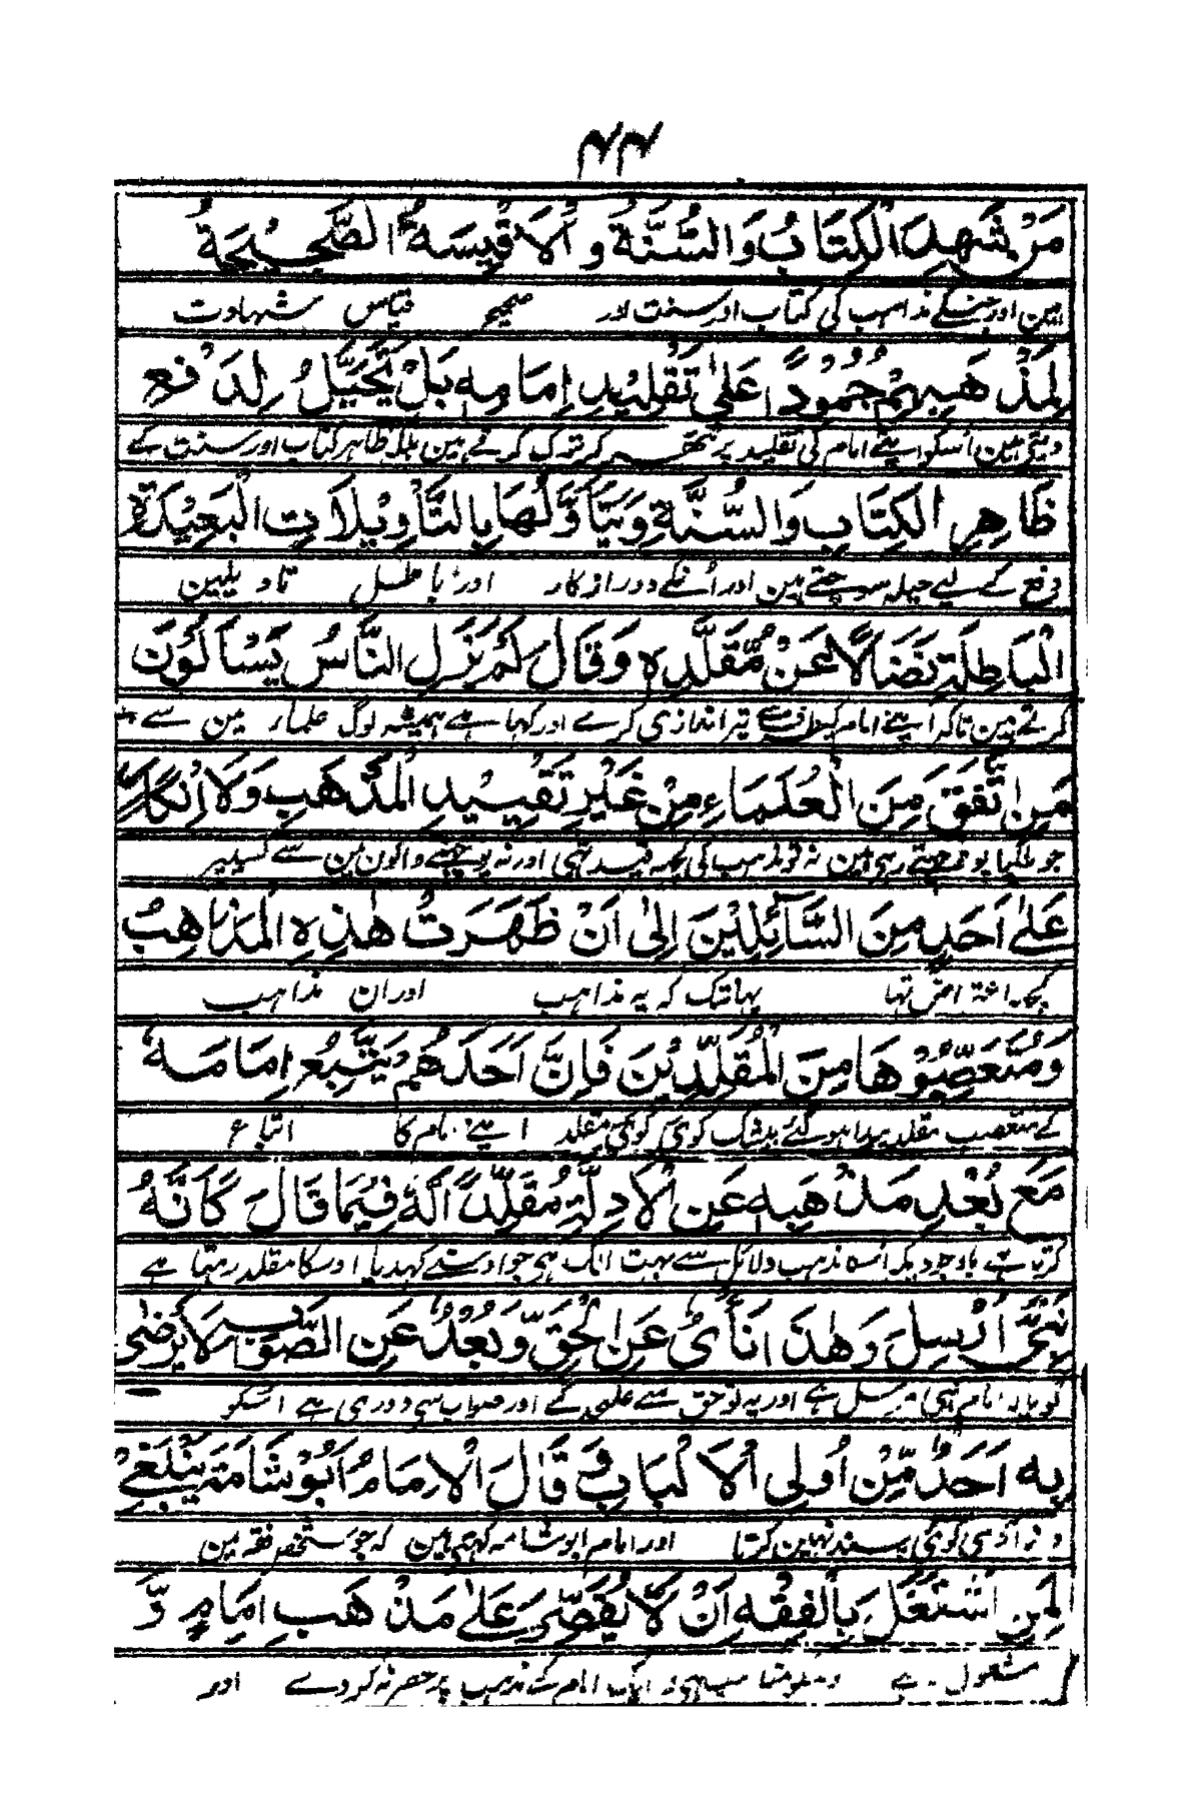 ۴۴
مَنْ شَهِدَ الْكِتَابُ وَالسُّنَّةُ وَالْاَقْيِسَةُ الصَّحِيْحَةُ
ہین اور جنکے مذاہب کی کتاب اور سنت اور صحیح قیاس شہادت
لِمَذْهَبِهِمْ جُمُوْدًا عَلىٰ تَقْلِيْدِ اِمَامِهٖ بَلْ يَتَحَيَّلُ لِدَفْعِ
دیتی ہین اُسکو اپنے امام کی تقلید پر کر ترک کرتے ہین بلکہ ظاہر کتاب اور سنت کے
ظَاهِرِ الْكِتَابِ وَالسُّنَّةِ وَيَتَأَوَّلُهَا بِالتَّأْوِيْلَاتِ الْبَعِيْدَةِ
دفع کے لیے حیلہ سوچتے ہین اور اُنکے دور از کار اور باطل تاویلین
الْبَاطِلَةِ نِضَالًا عَنْ مُّقَلَّدِهٖ وَقَالَ لَمْ يَزَلِ النَّاسُ يَسْاَلُوْنَ
کرتے ہین تاکہ اپنے امام کیطرف سے تیر اندازی کرے اور کہا ہے ہمیشہ لوگ علماء مین سے
مَنِ اتَّفَقَ مِنَ الْعُلَمَاءِ مِنْ غَيْرِ تَقْيِيْدٍ الْمَذْهَبِ وَلَا اِنْكَارٍ
جو ملگیا پوچھتے رہی ہین نہ تو مذہب کی کچھ قید تہی اور نہ پوچھنے والون مین سے کسیپر
عَلىٰ اَحَدٍ مِنَ السَّآئِلِيْنَ اِلىٰ اَنْ ظَهَرَتْ هٰذِهِ الْمَذَاهِبُ
کچھ اعتراض تہا یہانتک کہ یہ مذاہب اور ان مذاہب
وَمُتَعَصِّبُوْهَا مِنَ الْمُقَلِّدِيْنَ فَاِنَّ اَحَدَهُمْ يَتَّبِعُ اِمَامَهٗ
کے متعصب مقلد پیدا ہوگئے بیشک کوئی کوئی مقلد اپنے امام کا اتباع
مَعَ بُعْدِ مَذْهَبِهٖ عَنِ الْاَدِلَّةِ مُقَلِّدًا لَهٗ فِيْمَا قَالَ كَاَنَّهٗ
کرتا ہے باوجودیکہ اسکا مذہب دلائل سے بہت الگ ہی جو اوسنے کہدیا اوسکا مقلد رہتا ہے
نَبِيٌّ اُرْسِلَ وَهٰذَا نَأْىٌ عَنِ الْحَقِّ وَبُعْدٌ عَنِ الصَّوَابِ لَا يَرْضىٰ
گویا امام نبی مرسل ہے اور یہ تو حق سے علیحدگی اور صواب سی دوری ہے اسکو
بِهٖ اَحَدٌ مِّنْ اُولِى الْاَلْبَابِ وَقَالَ الْاِمَامُ اَبُوْ شَامَةَ يَنْبَغِيْ
کوئی پسند نہین کرتا اور امام ابو شامہ کہتے ہین کہ جو شخص فقہ مین
لِمَنِ اشْتَغَلَ بِالْفِقْهِ اَنْ لَّا يَقْتَصِرَ عَلىٰ مَذْهَبِ اِمَامٍ وَّ
مشغول ایک امام کے مذہب پر حصر نہ کر دے اور